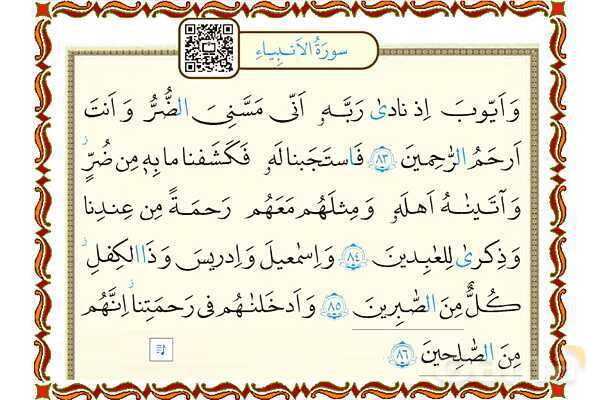 سورَةُ الاَنبِیاءِ
وَ اَیّوبَ اِذ نادىٰ رَبَّهٗ اَنّی مَسَّنِیَ الضُّرُّ وَ اَنتَ
اَرحَمُ الرّٰحِمینَ ﴿٨٣﴾ فَاستَجَبنا لَهٗ فَكَشَفنا ما بِهٖ مِن ضُرٍّ
وَ آتَینٰهُ اَهلَهٗ وَ مِثلَهُم مَعَهُم رَحمَةً مِن عِندِنا
وَ ذِكرىٰ لِلعٰبِدینَ ﴿٨٤﴾ وَ اِسمٰعیلَ وَ اِدریسَ وَ ذَا الكِفلِ
كُلٌّ مِنَ الصّٰبِرینَ ﴿٨٥﴾ وَ اَدخَلنٰهُم فی رَحمَتِنا اِنَّهُم
مِنَ الصّٰلِحینَ ﴿٨٦﴾